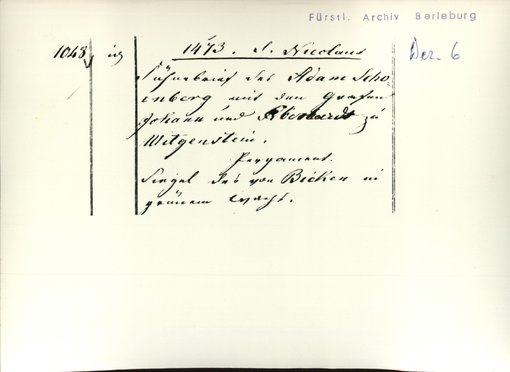 Fürstl. Archiv Berleburg
1048 1473. S. Nicolaus Dez. 6
Sühnebrief des Adam Scho
enberg mit den Grafen
Johann und Eberhardt zu
Witgenstein.
Pergament.
Siegel des von Bicken in
grünem Wachs.